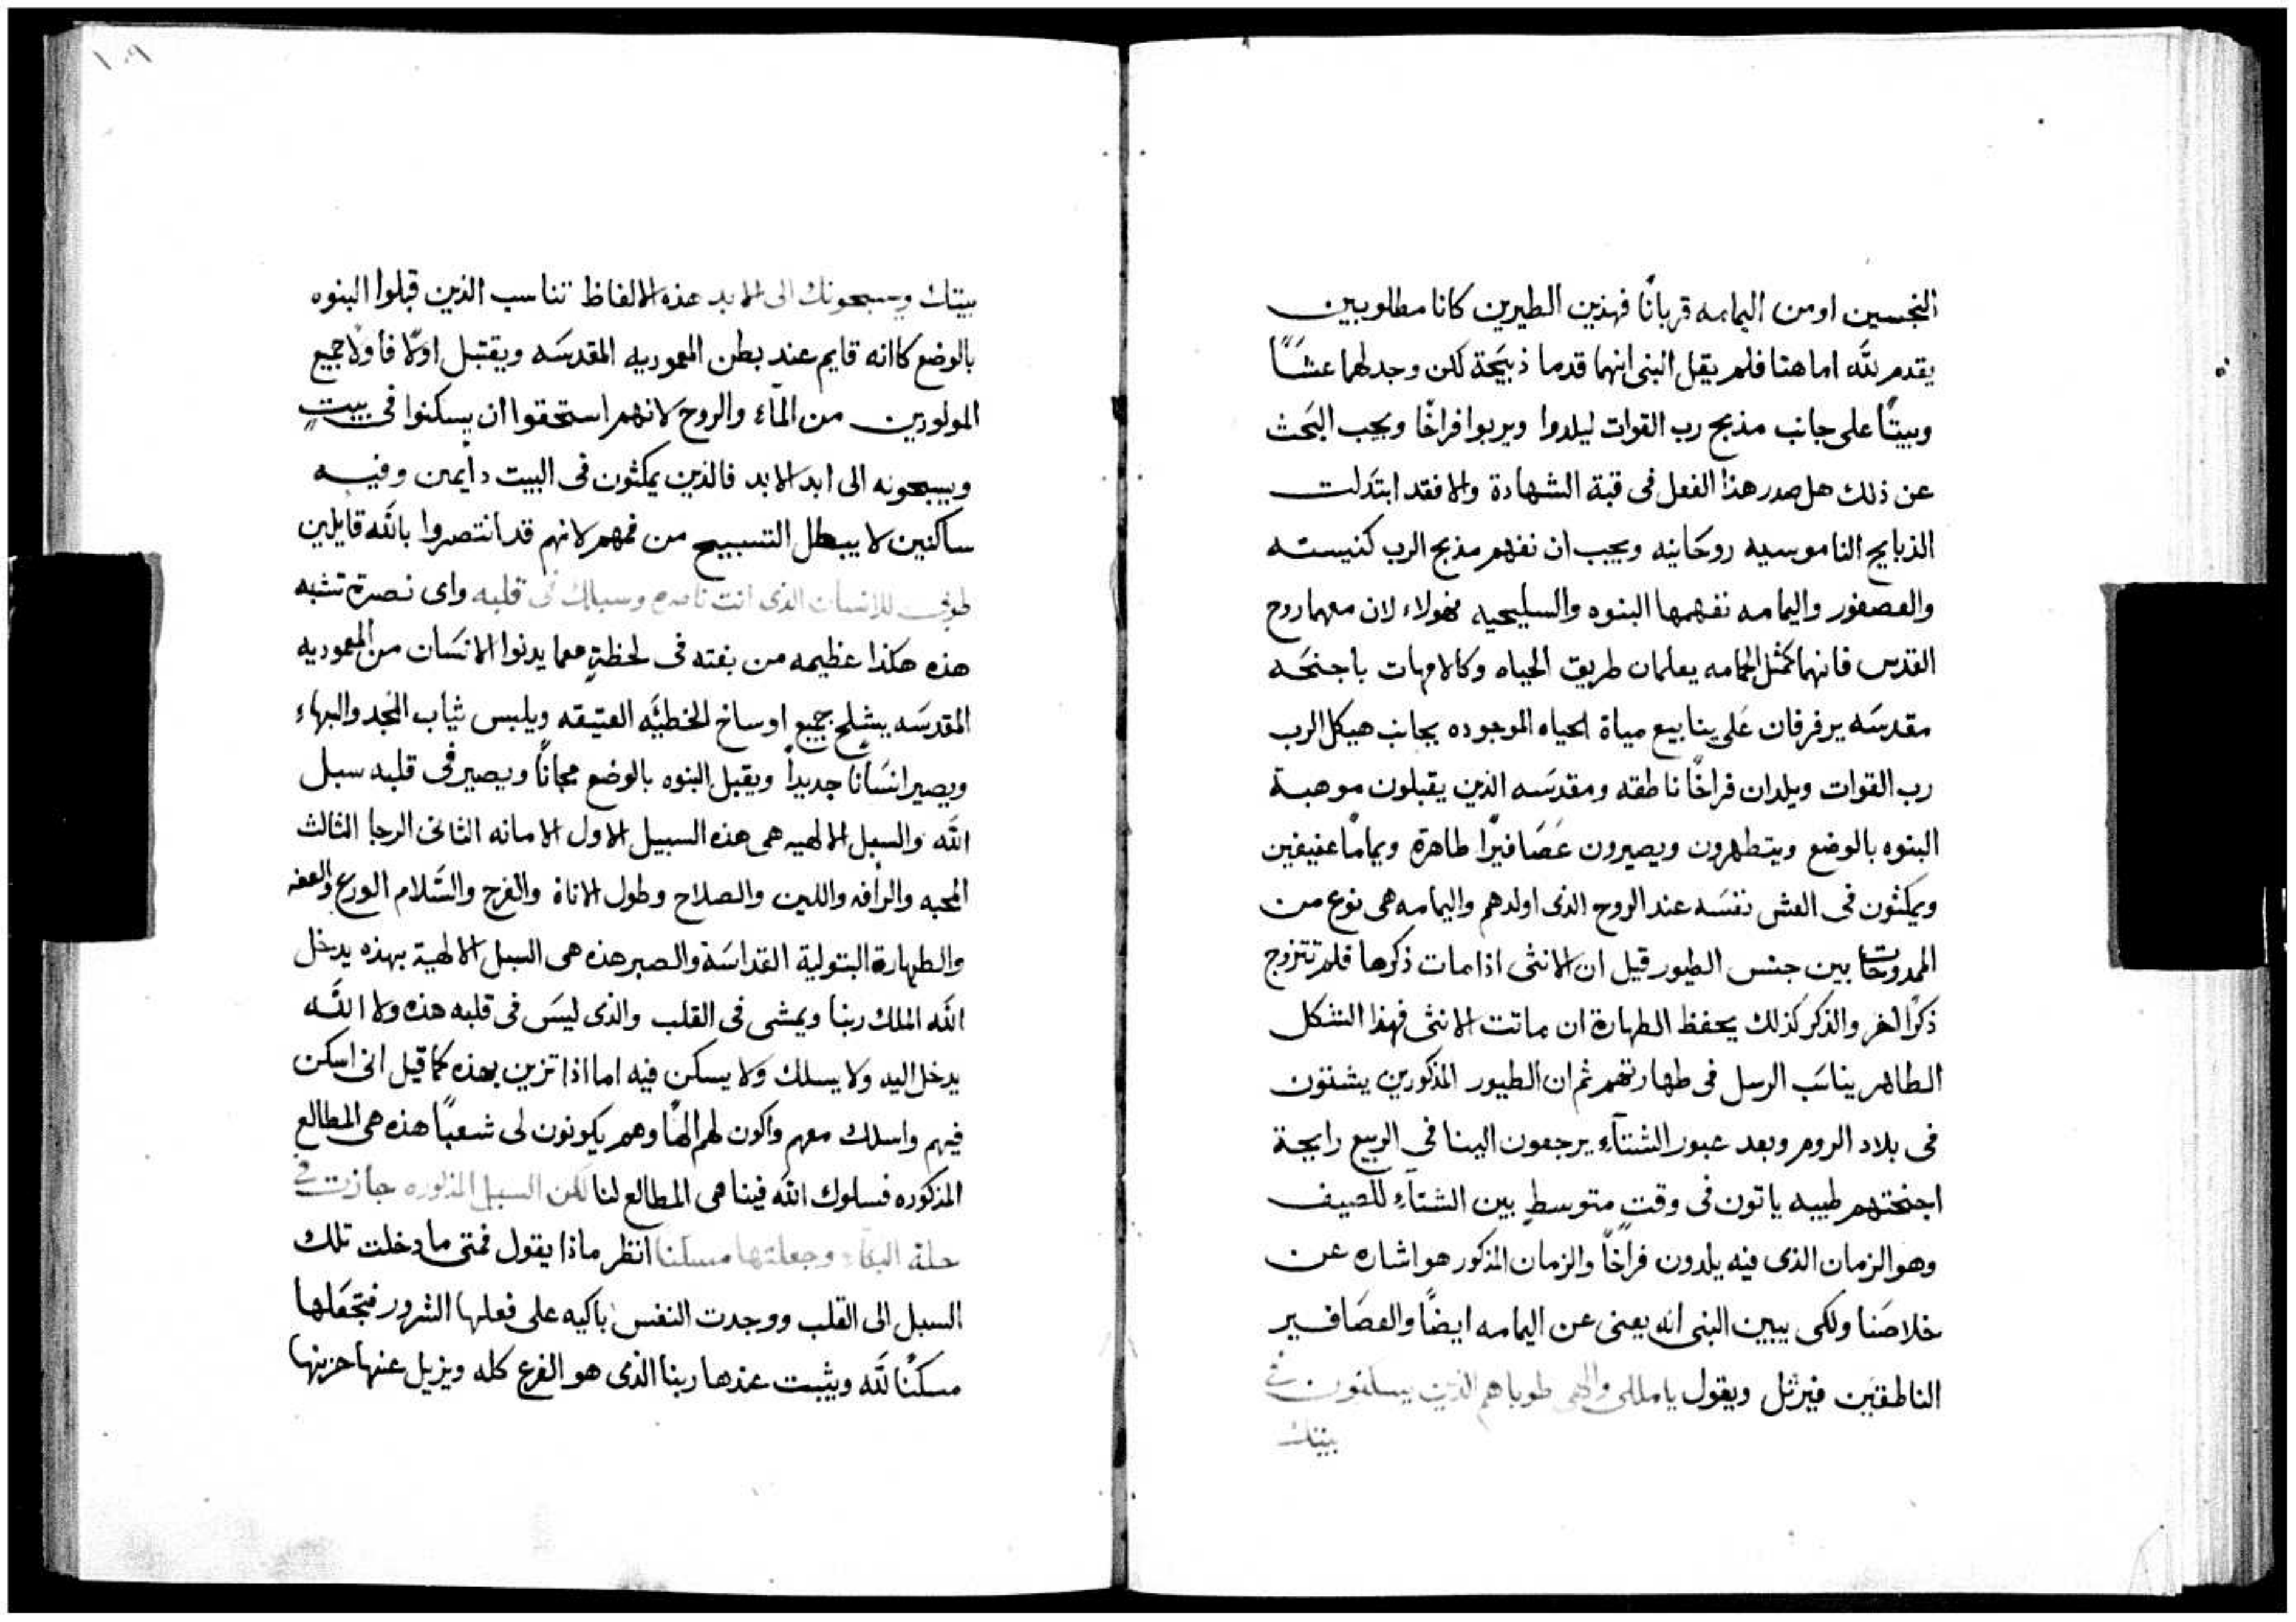 النجسين او من اليمامه قربانًا فهذين الطيرين كانا مطلوبين
يقدم لله اما هنا فلم يقل النبى انهما قدما ذبيحة لكن وجد لهما عشًا
وبيتًا على جانب مذبح رب القوات ليلدوا ويربوا فراخًا ويجب البحث
عن ذلك هل صدر هذا الفعل فى قبة الشهادة والا فقد ابتدلت
الذبايح الناموسيه روحانيه ويجب ان نفهم مذبح الرب كنيسته
والعصفور واليمامه نفهمها البنوه والسليحيه فهولاء لان معهما روح
القدس فانهما كمثل الحمامه يعلمان طريق الحياه وكالامهات باجنحه
مقدسه يرفرفان على ينابيع مياة الحياه الموجوده بجانب هيكل الرب
رب القوات ويلدان فراخًا ناطقه ومقدسه الذين يقبلون موهبة
البنوه بالوضع ويتطهرون ويصيرون عصافيرًا طاهرة ويمامًا عفيفين
ويمكثون فى العش نفسه عند الروح الذى اولدهم واليمامه هى نوع من
الممدوحات بين جنس الطيور قيل ان الانثى اذا مات ذكرها فلم تتزوج
ذكرًا اخر والذكر كذلك يحفظ الطهارة ان ماتت الانثى فهذا الشكل
الطاهر يناسب الرسل فى طهارتهم ثم ان الطيور المذكورين يشتون
فى بلاد الروم وبعد عبور الشتآء يرجعون الينا فى الربيع رايحة
اجنحتهم طيبه ياتون فى وقتٍ متوسطٍ بين الشتآء للصيف
وهو الزمان الذى فيه يلدون فراخًا والزمان المذكور هو اشاره عن
خلاصنا ولكى يبين النبى انه يعنى عن اليمامه ايضًا والعصافير
الناطقين فيرتل ويقول ياملكى والهى طوباهم الذين يسكنون فى
بيتك
١٠٩
بيتك ويسبحونك الى الابد هذه الالفاظ تناسب الذين قبلوا البنوه
بالوضع كاانه قايم عند بطن المعموديه المقدسه ويقتبل اولًا فأولًا جميع
المولودين من المآء والروح لانهم استحقوا ان يسكنوا فى بيتٍ
ويسبحونه الى ابد الابد فالذين يمكثون فى البيت دايمين وفيه
ساكنين لا يبطل التسبيح من فمهم لانهم قد انتصروا بالله قايلين
طوبى للانسان الذى انت ناصره وسبلك فى قلبه واى نصرة تشبه
هذه هكذا عظيمه من بغته فى لحظةٍ معما يدنوا الانسان من المعموديه
المقدسه يشلح جميع اوساخ الخطيه العتيقه ويلبس ثياب المجد والبهاء
ويصير انسانًا جديدًا ويقبل البنوه بالوضع مجانًا ويصير فى قلبه سبل
الله والسبل الالهيه هى هذه السبيل الاول الامانه الثانى الرجا الثالث
المحبه والرأفه واللين والصلاح وطول الاناة والفرح والسلام الورع والعفه
والطهارة البتولية القداسة والصبر هذه هى السبل الالهية بهذه يدخل
الله الملك ربنا ويمشى فى القلب والذى ليس فى قلبه هذه ولا الله
يدخل اليه ولا يسلك ولا يسكن فيه اما اذا تزين بهذه كما قيل انى اسكن
فيهم واسلك معهم واكون لهم الهًا وهم يكونون لى شعبًا هذه هى المطالع
المذكوره فسلوك الله فينا هى المطالع لنا لكن السبل المذكوره جازت فى
حلة البكاء وجعلتها مسكنا انظر ماذا يقول فمتى ما دخلت تلك
السبل الى القلب ووجدت النفس باكيه على فعلها الشرور فتجعلها
مسكنًا لله ويثبت عندها ربنا الذى هو الفرح كله ويزيل عنها حزنها